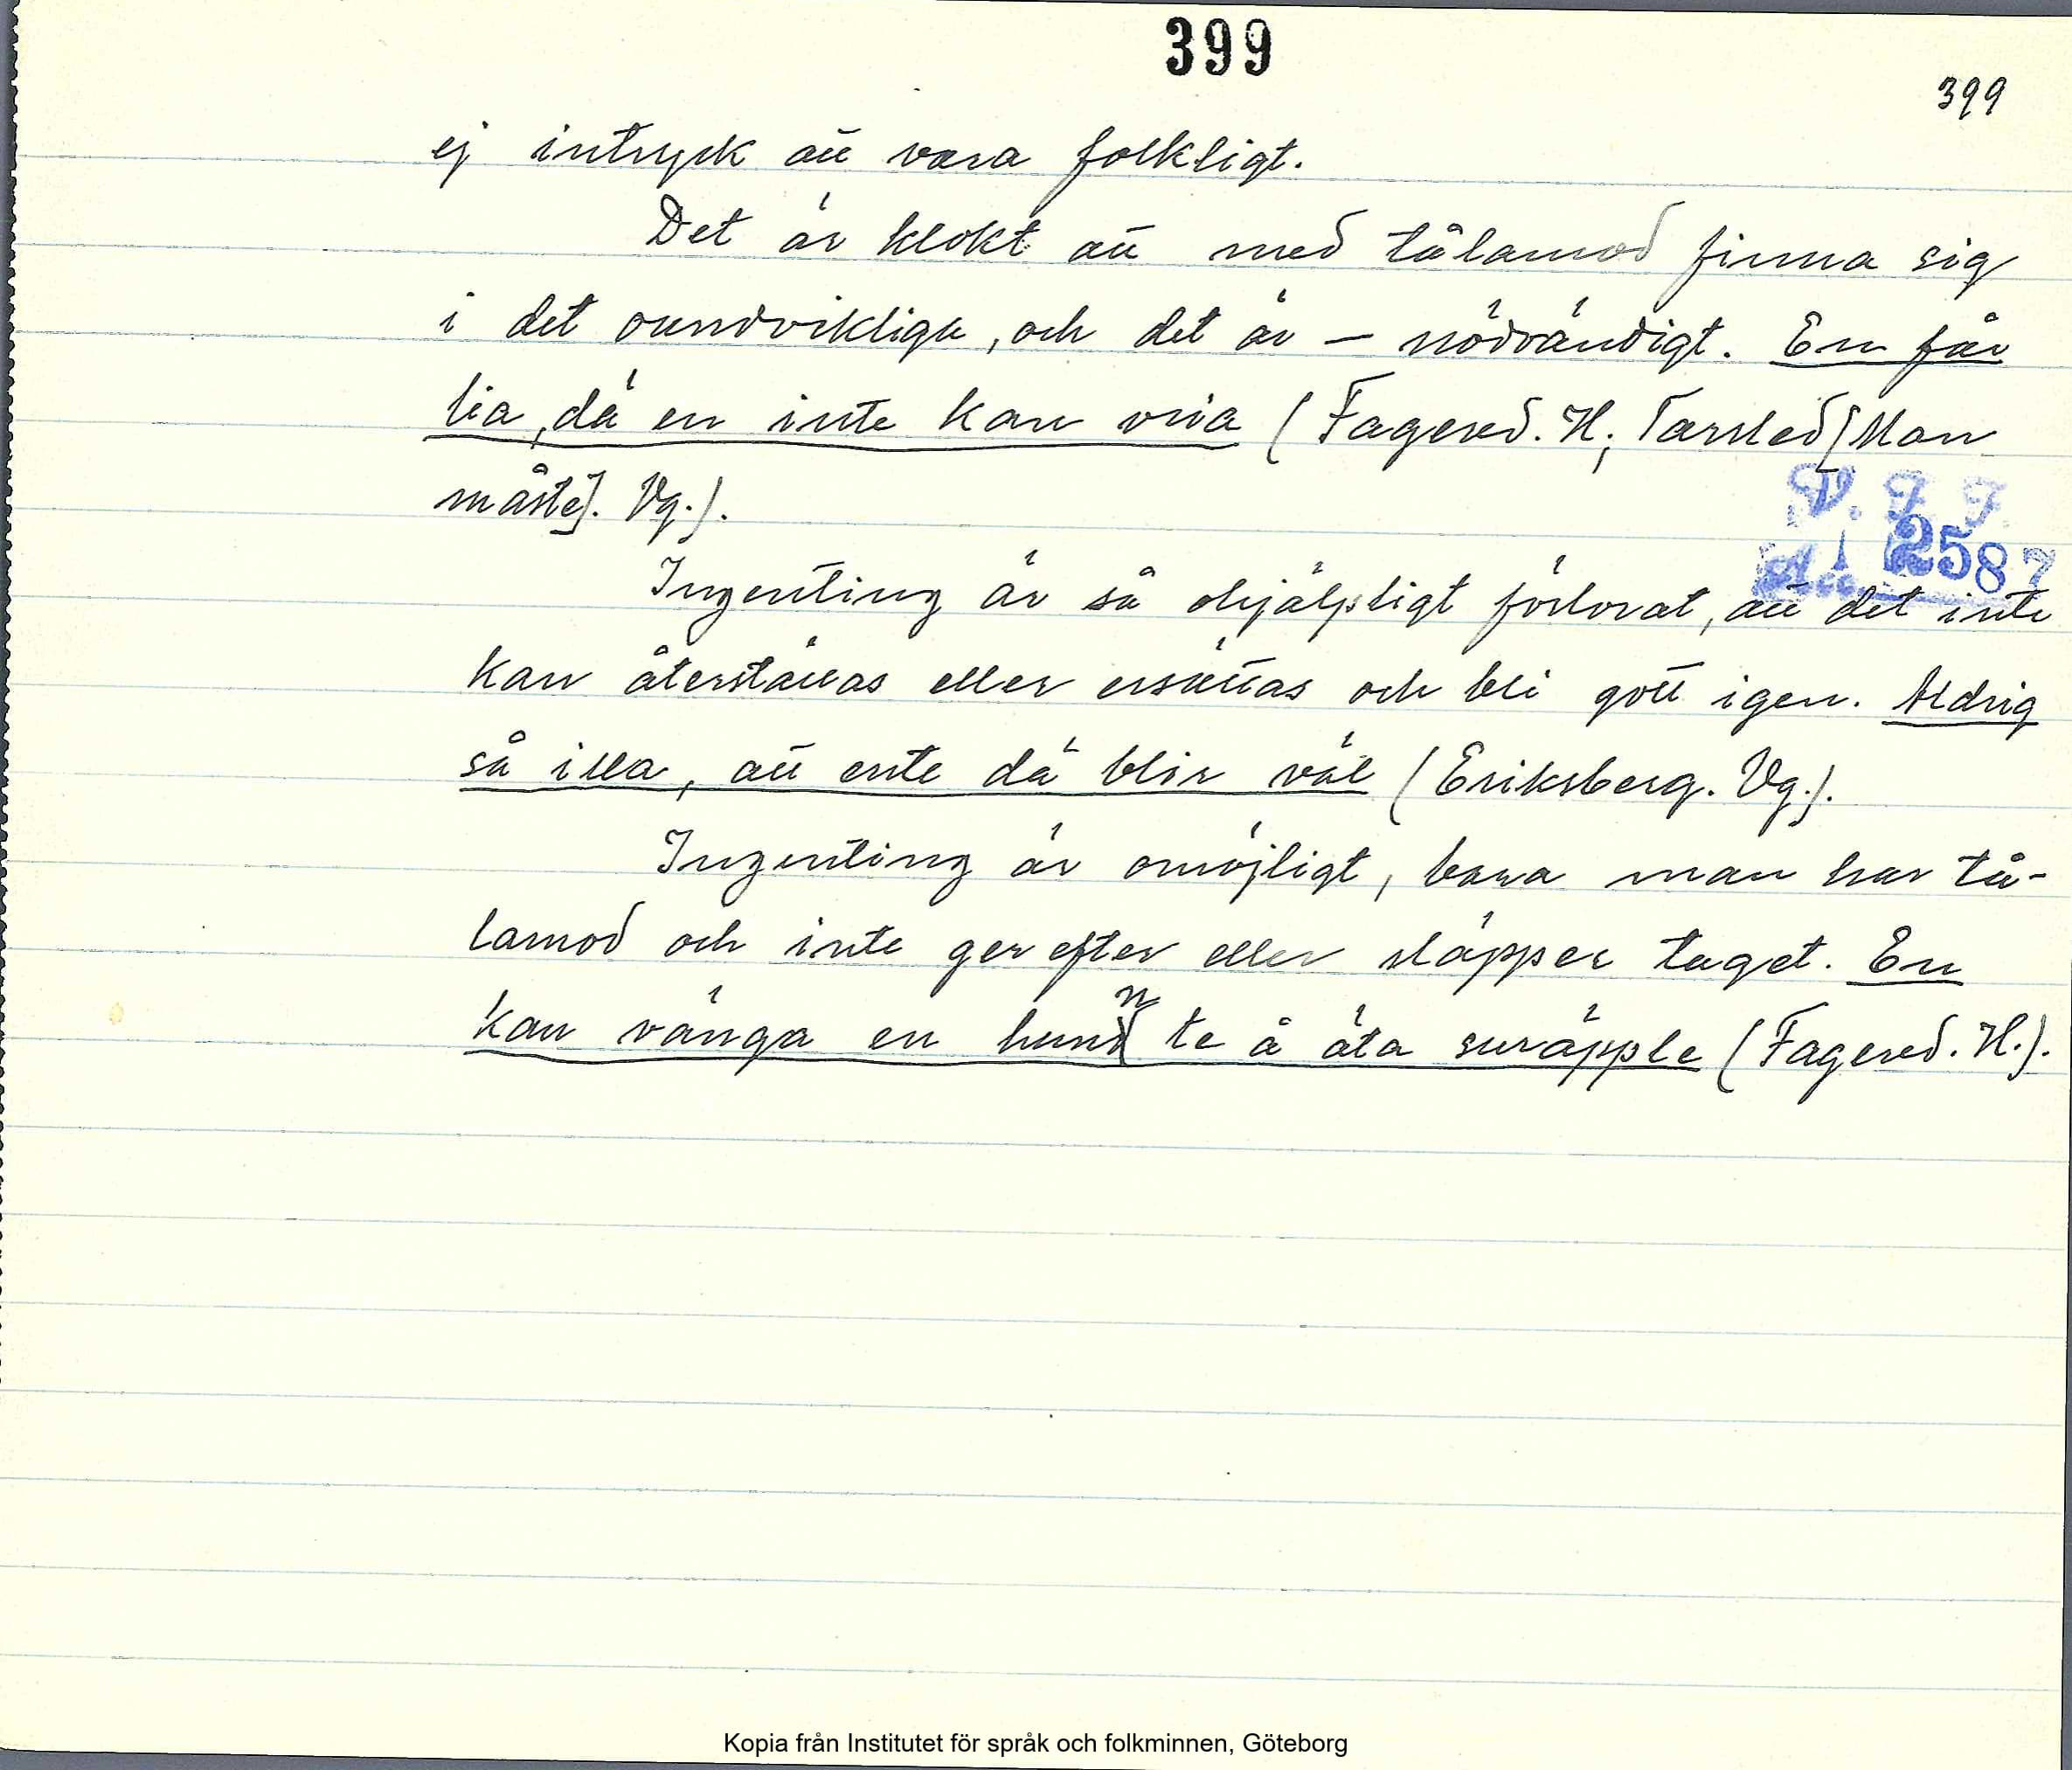 399
399
ej intryck att vara folkligt.
Det är klokt att med tålamod finna sig
i det oundvikliga, och det är – nödvändigt. En får
lia, dä en inte kan vria (Fagered. H; Tarsled [Man
måste]. Vg.).
V. F. F.
Acc. 2587
Ingenting är så ohjälpligt förlorat, att det inte
kan återställas eller ersättas och bli gott igen. Aldrig
så illa, att ente dä blir väl (Eriksberg. Vg.).
Ingenting är omöjligt, bara man har tå-
lamod och inte ger efter eller släpper taget. En
kan vänga en hunn te å äta suräpple (Fagered. H.).
Kopia från Institutet för språk och folkminnen, Göteborg